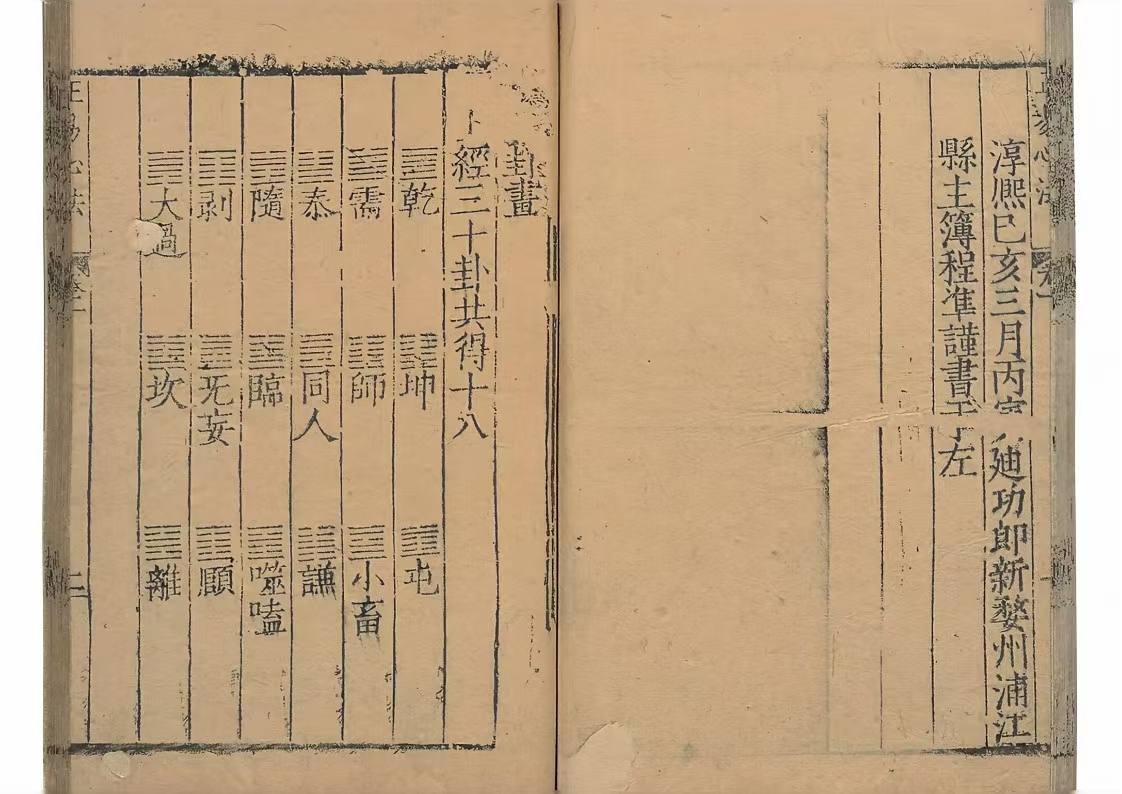 正易心法 卷一
淳熙巳亥三月丙寅 迪功郎新婺州浦江
縣主簿程準謹書于左
卦畫
上經三十卦共得十八
乾 坤 屯
需 師 小畜
泰 同人 謙
隨 臨 噬嗑
剥 无妄 頤
大過 坎 離
正易心法 卷一 二